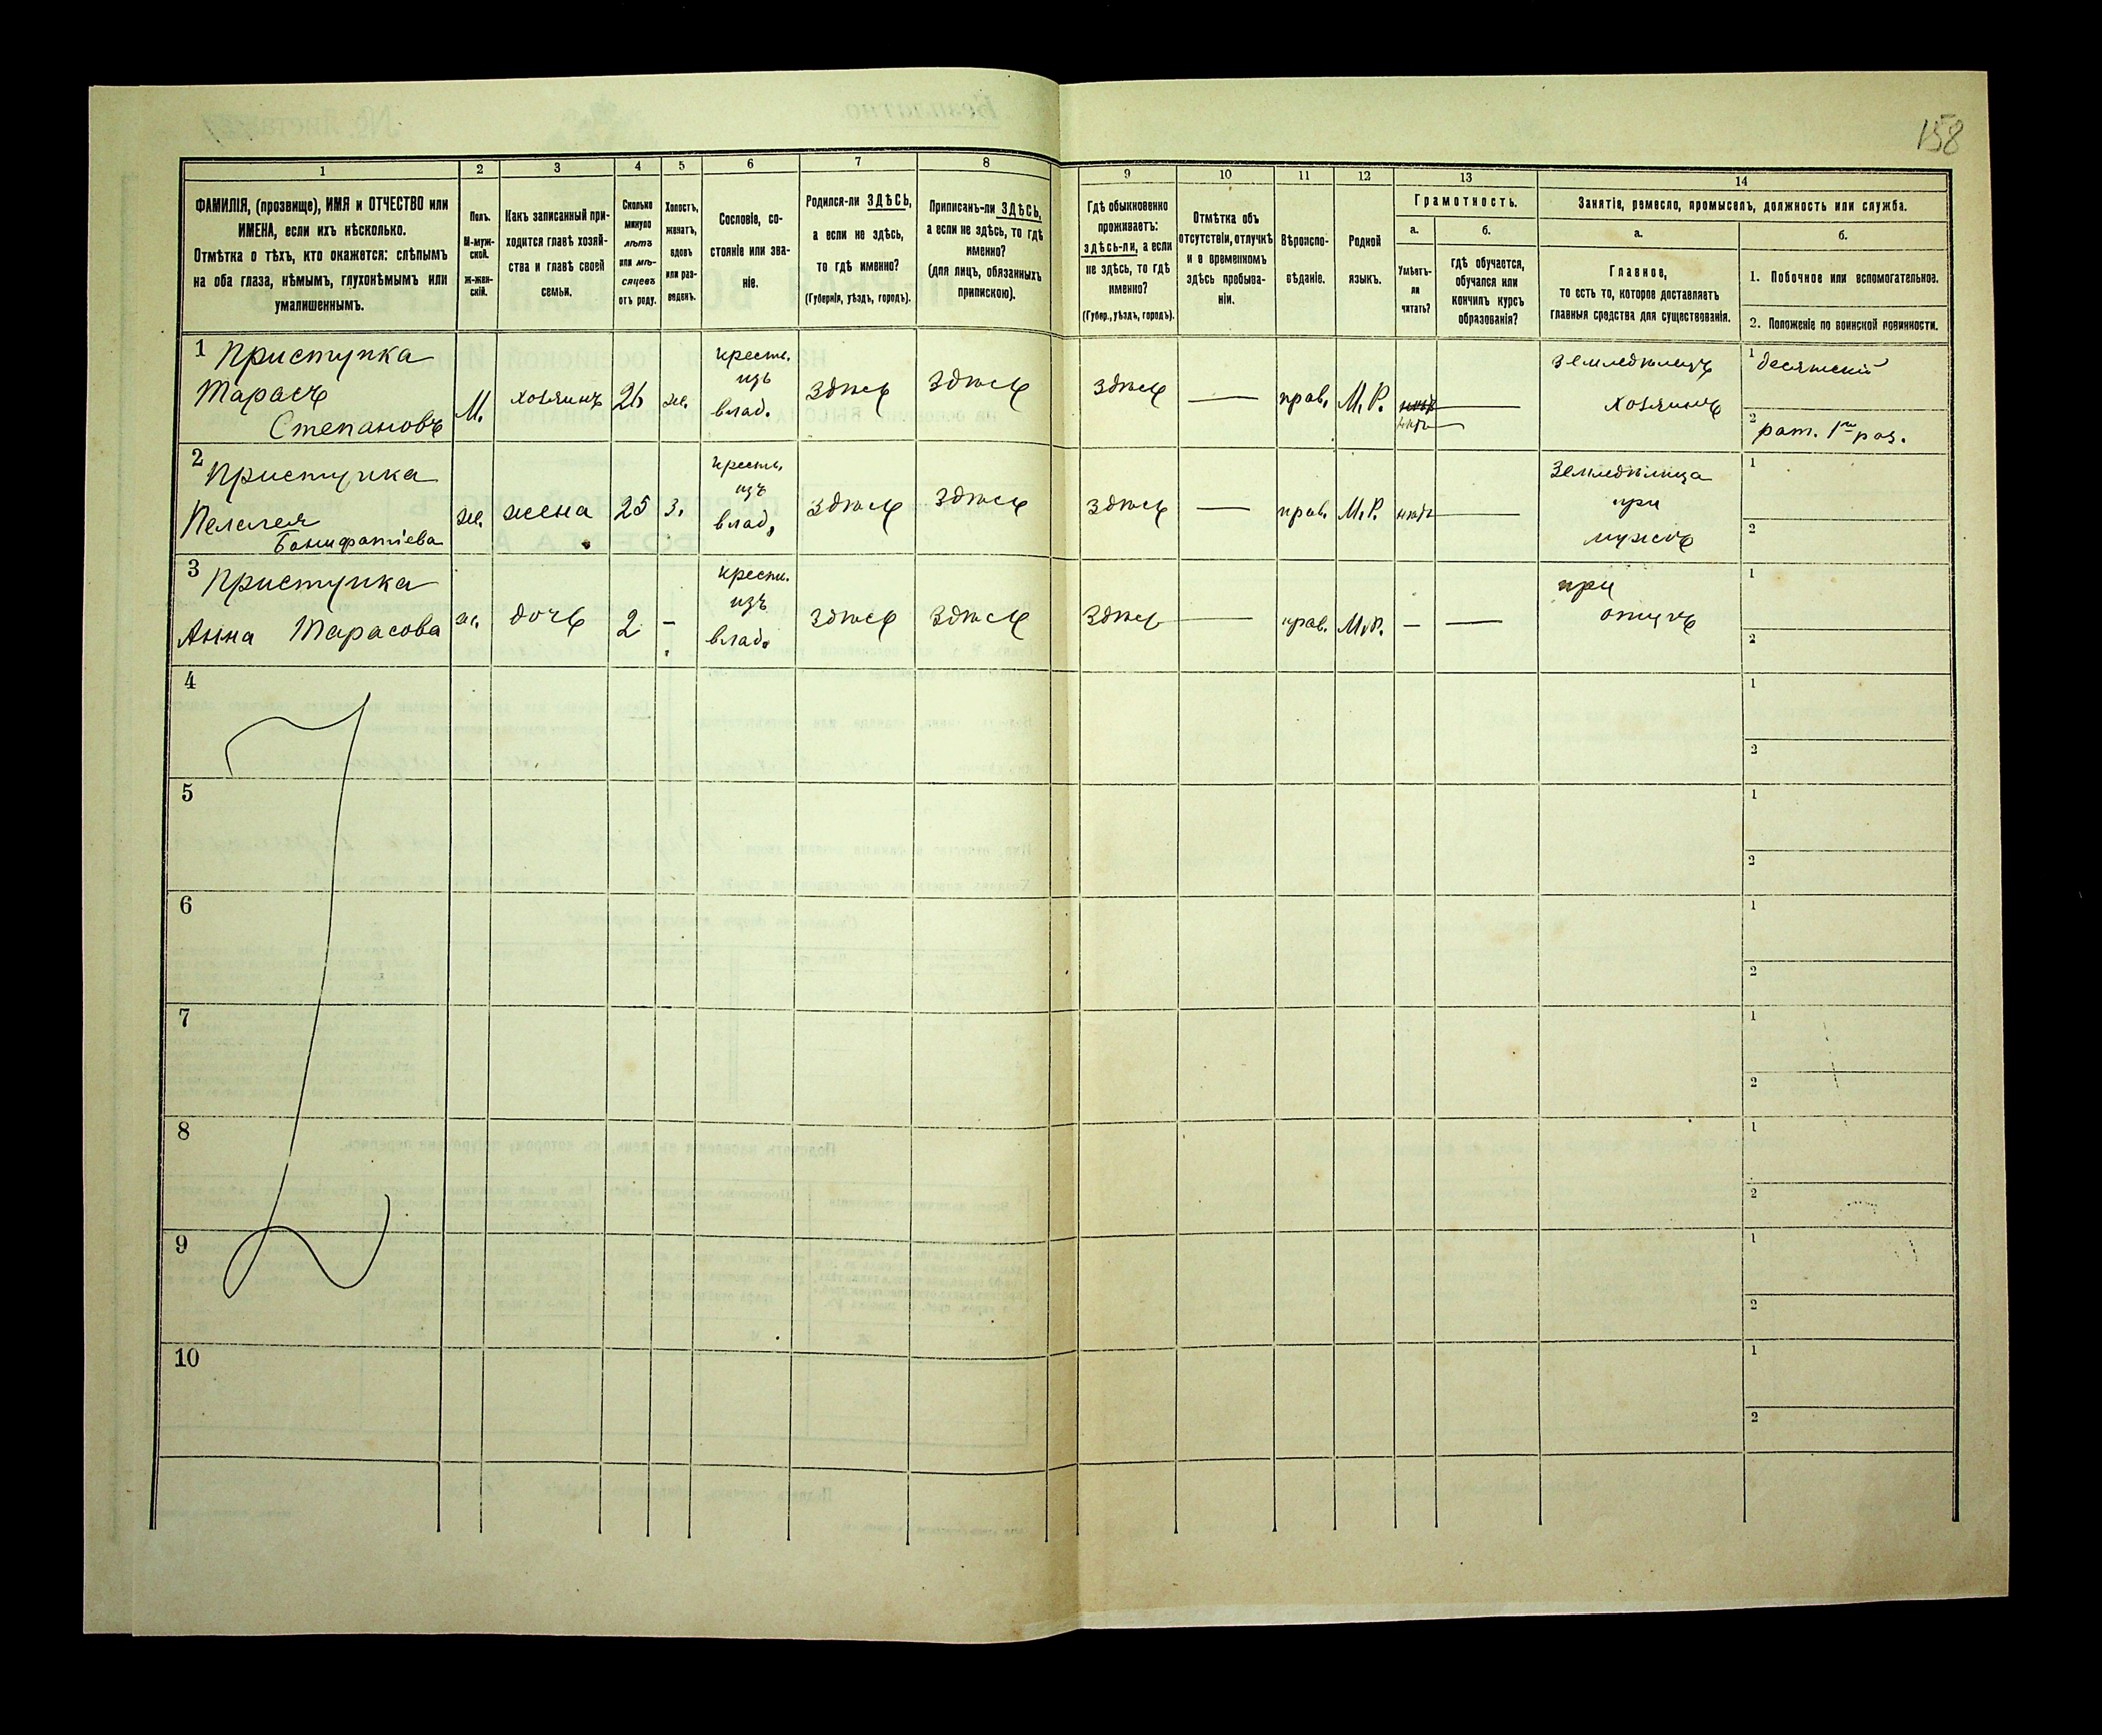 158
1
2
3
4
5
6
7
8
9
10
11
12
13
14
ФАМИЛІЯ, (прозвище), ИМЯ и ОТЧЕСТВО или
ИМЕНА, если ихъ нѣсколько.
Отмѣтка о тѣхъ, кто окажется: слѣпымъ
на оба глаза, нѣмымъ, глухонѣмымъ или
умалишеннымъ.
Полъ.
М-муж-
ской.
ж-жен-
скій.
Какъ записанный при-
ходится главѣ хозяй-
ства и главѣ своей
семьи.
Сколько
минуло
лѣтъ
или мѣ-
сяцевъ
отъ роду.
Холостъ,
женатъ,
вдовъ
или раз-
веденъ.
Сословіе, со-
стояніе или зва-
ніе.
Родился-ли ЗДѢСЬ,
а если не здѣсь,
то гдѣ именно?
(Губернія, уѣздъ, городъ).
Приписанъ-ли ЗДѢСЬ,
а если не здѣсь, то гдѣ
именно?
(для лицъ, обязанныхъ
припискою).
Гдѣ обыкновенно
проживаетъ:
здѣсь-ли, а если
не здѣсь, то гдѣ
именно?
(Губер., уѣздъ, городъ).
Отмѣтка объ
отсутствіи, отлучкѣ
и о временномъ
здѣсь пребыва-
ніи.
Вѣроиспо-
вѣданіе.
Родной
языкъ.
Грамотность.
а.
б.
Умѣетъ-
ли
читать?
гдѣ обучается,
обучался или
кончилъ курсъ
образованія?
Занятіе, ремесло, промыселъ, должность или служба.
а.
б.
Главное,
то есть то, которое доставляетъ
главныя средства для существованія.
1. Побочное или вспомогательное.
2. Положеніе по воинской повинности.
1 Приступка
Тарасъ
Степановъ
М.
хозяинъ
26
же.
крестн.
изъ
влад.
здѣсь
здѣсь
здѣсь
—
прав.
М.Р.
нѣтъ
—
земледѣлецъ
хозяинъ
1 десятскій
2 рат. 1го раз.
2 Приступка
Пелагея
Бонифатіева
же.
жена
25
з.
крестн.
изъ
влад.
здѣсь
здѣсь
здѣсь
—
прав.
М.Р.
нѣтъ
—
земледѣлица
при
мужѣ
1
2
3 Приступка
Анна Тарасова
же.
дочь
2
-
крестн.
изъ
влад.
здѣсь
здѣсь
здѣсь
—
прав.
М.Р.
—
—
при
отцѣ
1
2
4
1
2
5
1
2
6
1
2
7
1
2
8
1
2
9
1
2
10
1
2